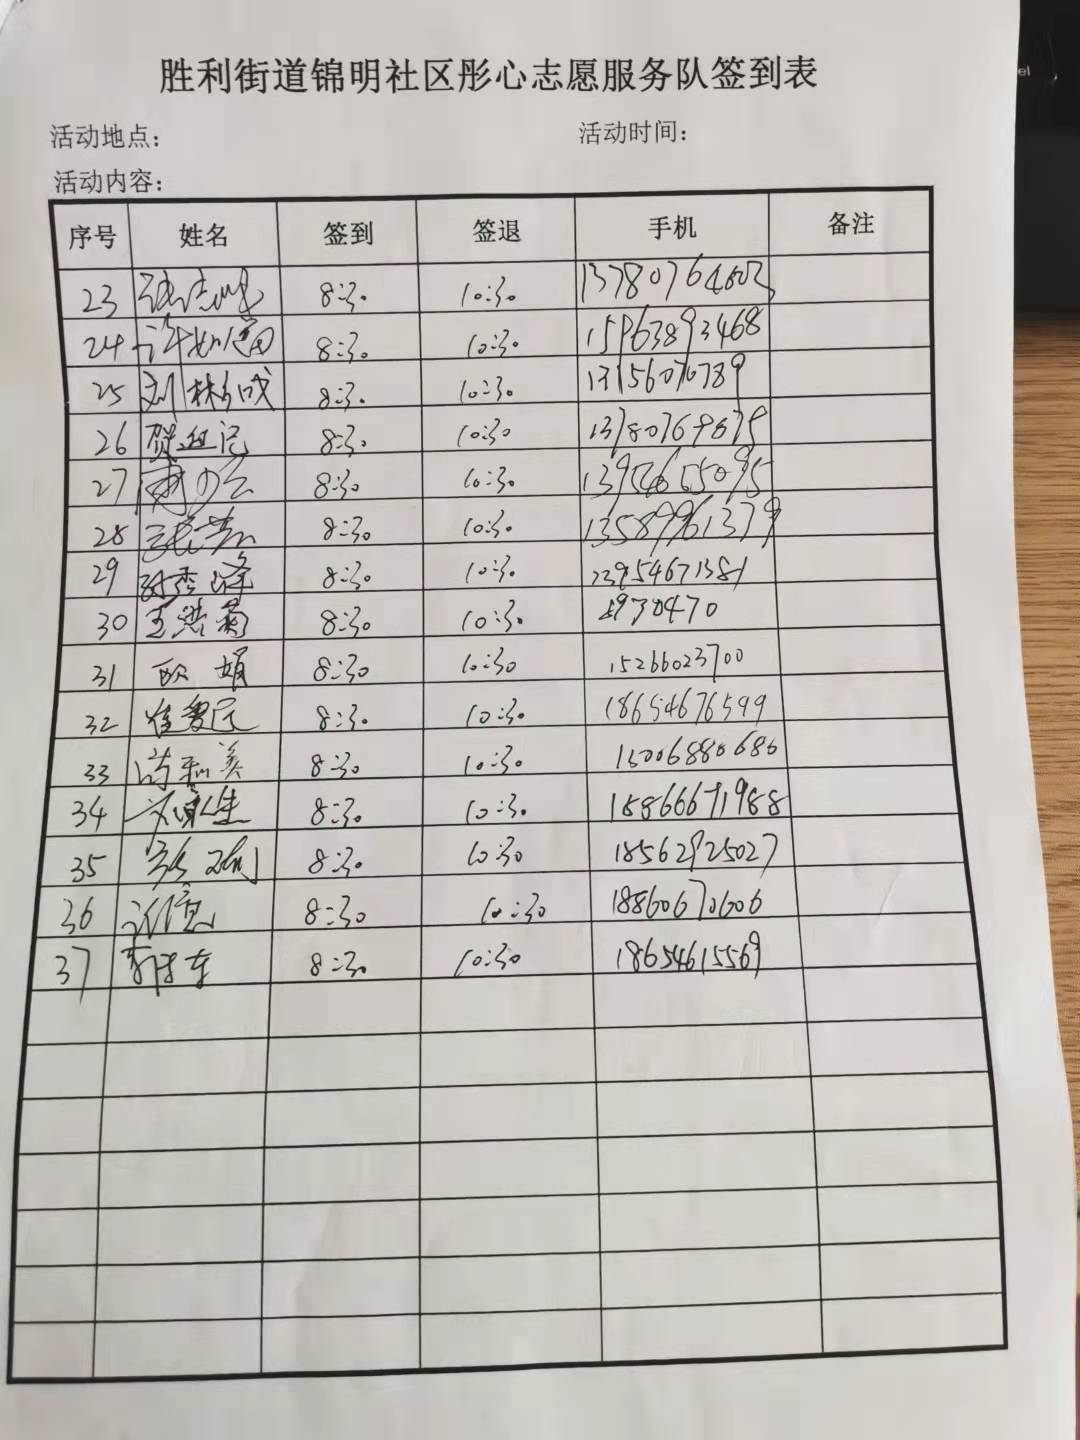 胜利街道锦明社区彤心志愿服务队签到表
活动地点： 活动时间：
活动内容：
序号 姓名 签到 签退 手机 备注
23 8:30 10:30
24 许如 8:30 10:30 15963893468
25 刘林成 8:30 10:30
26 8:30 10:30 13780769675
27 周少云 8:30 10:30 13954665095
28 张芸 8:30 10:30 13589961379
29 孙秀峰 8:30 10:30 13954671381
30 王器菊 8:30 10:30
31 欧娟 8:30 10:30 15266023700
32 崔爱民 8:30 10:30 18654676599
33 8:30 10:30 15006880686
34 8:30 10:30
35 8:30 10:30 18562925027
36 8:30 10:30 18860670606
37 郭东 8:30 10:30 18654615569
el